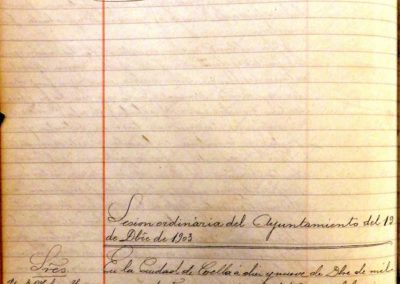 Sesion ordinaria del Ayuntamiento del 19
de Dbre de 1903
Sres
En la Ciudad de Coella á diez y nueve de Dbre de mil